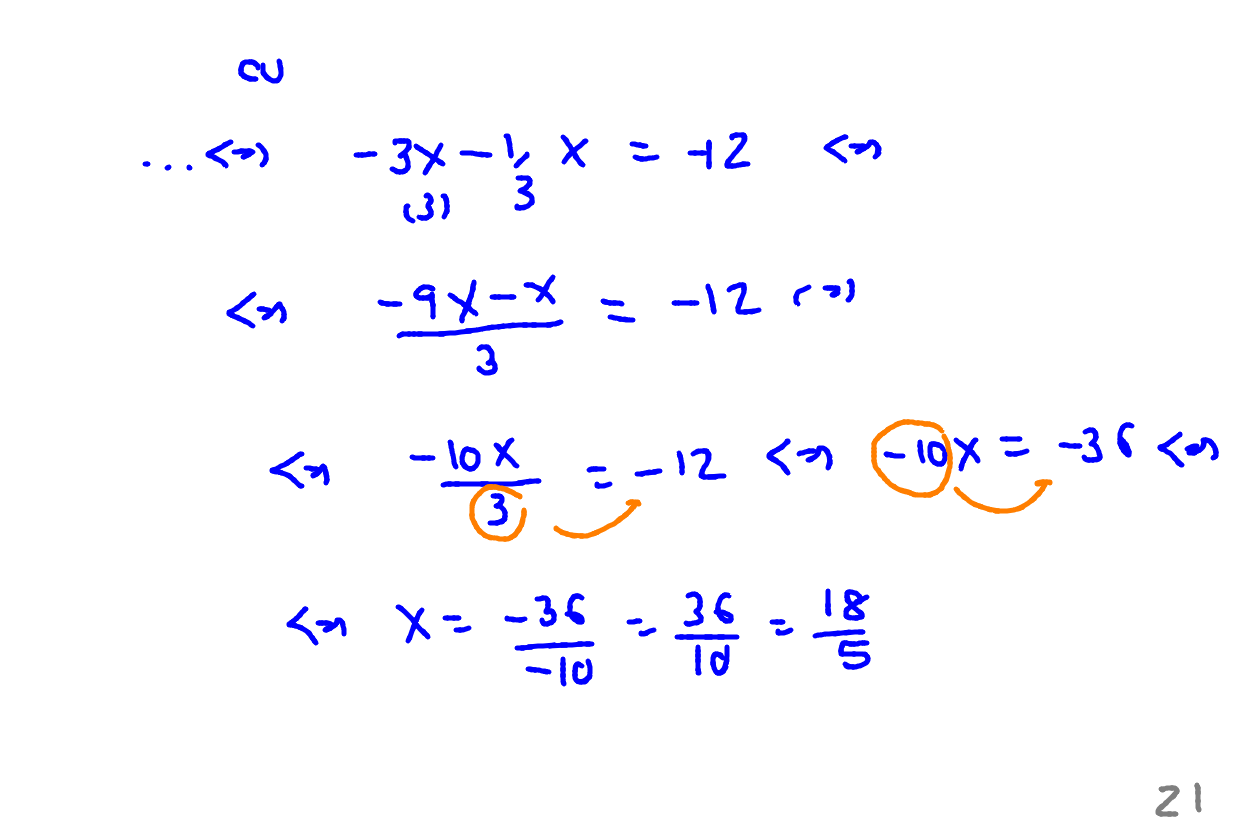 ou
... <=> -3x - 1/3 x = -12 <=>
(3)
<=> (-9x - x)/3 = -12 <=>
<=> -10x/3 = -12 <=> -10x = -36 <=>
<=> x = -36/-10 = 36/10 = 18/5
21